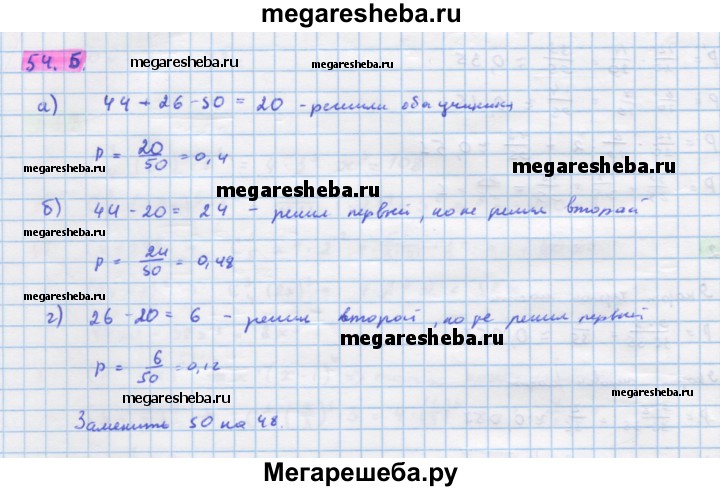 megaresheba.ru
54. Б.
megaresheba.ru megaresheba.ru
а) 44 + 26 - 50 = 20 - решили оба ученика
P = 20/50 = 0,4
megaresheba.ru megaresheba.ru
megaresheba.ru
б) 44 - 20 = 24 - решил первый, но не решил второй
megaresheba.ru
P = 24/50 = 0,48
megaresheba.ru megaresheba.ru
г) 26 - 20 = 6 - решил второй, но не решил первый
megaresheba.ru
P = 6/50 = 0,12
megaresheba.ru
megaresheba.ru megaresheba.ru
Заменить 50 на 48.
megaresheba.ru
Мегарешеба.ру